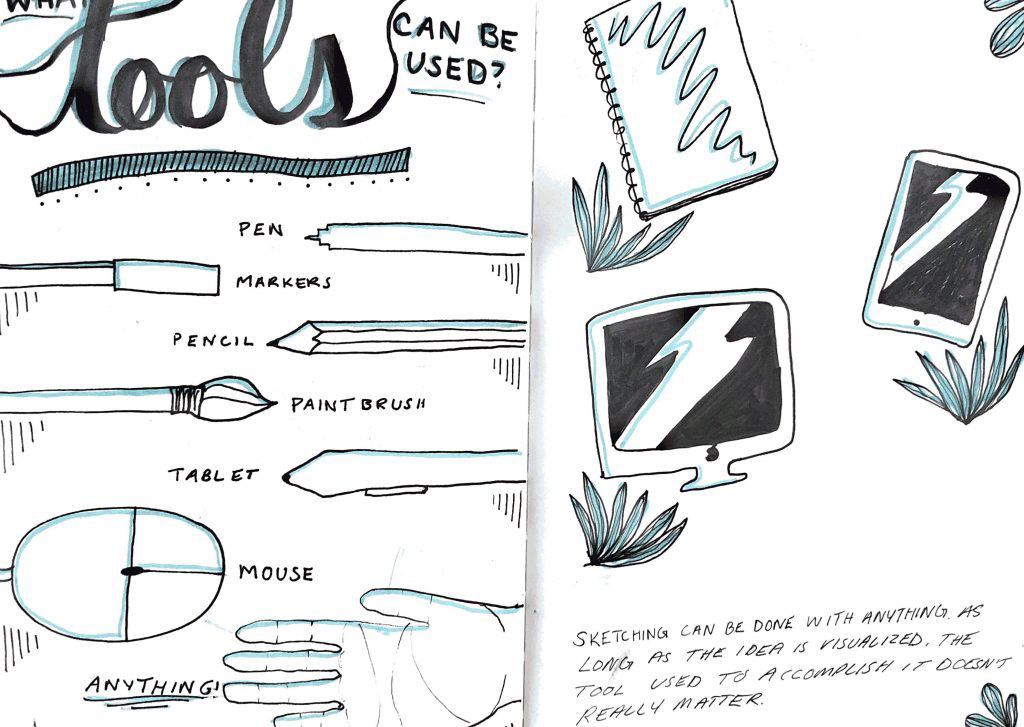 WHAT
tools
CAN BE
USED?
PEN
MARKERS
PENCIL
PAINTBRUSH
TABLET
MOUSE
ANYTHING!
SKETCHING CAN BE DONE WITH ANYTHING. AS
LONG AS THE IDEA IS VISUALIZED. THE
TOOL USED TO ACCOMPLISH IT DOESN'T
REALLY MATTER.